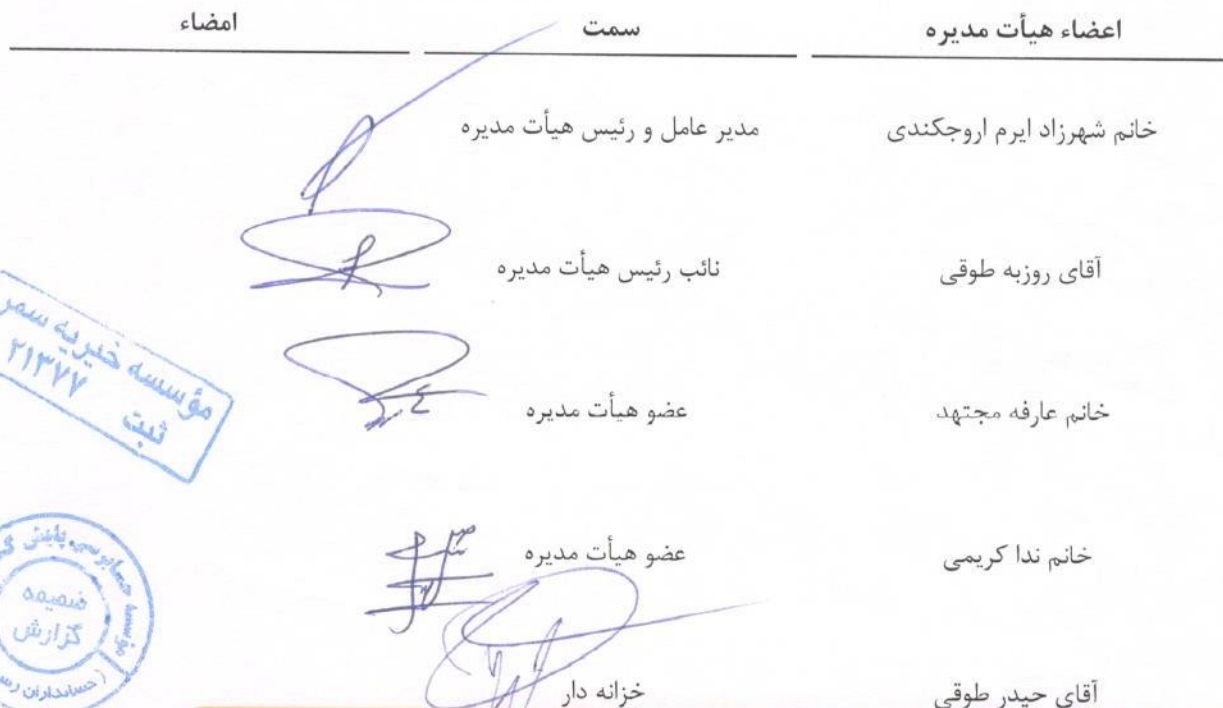 اعضاء هیأت مدیره سمت امضاء
خانم شهرزاد ایرم اروجکندی مدیر عامل و رئیس هیأت مدیره
آقای روزبه طوقی نائب رئیس هیأت مدیره
خانم عارفه مجتهد عضو هیأت مدیره
خانم ندا کریمی عضو هیأت مدیره
آقای حیدر طوقی خزانه دار
مؤسسه خیریه سمر
ثبت ۲۱۳۷۷
موسسه حسابرسی پایش
ضمیمه
گزارش
(حسابداران